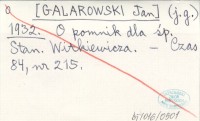 a [GALAROWSKI Jan] (j.g.)
1932. O pomnik dla śp.
Stan. Witkiewicza. – Czas
84, nr 215.